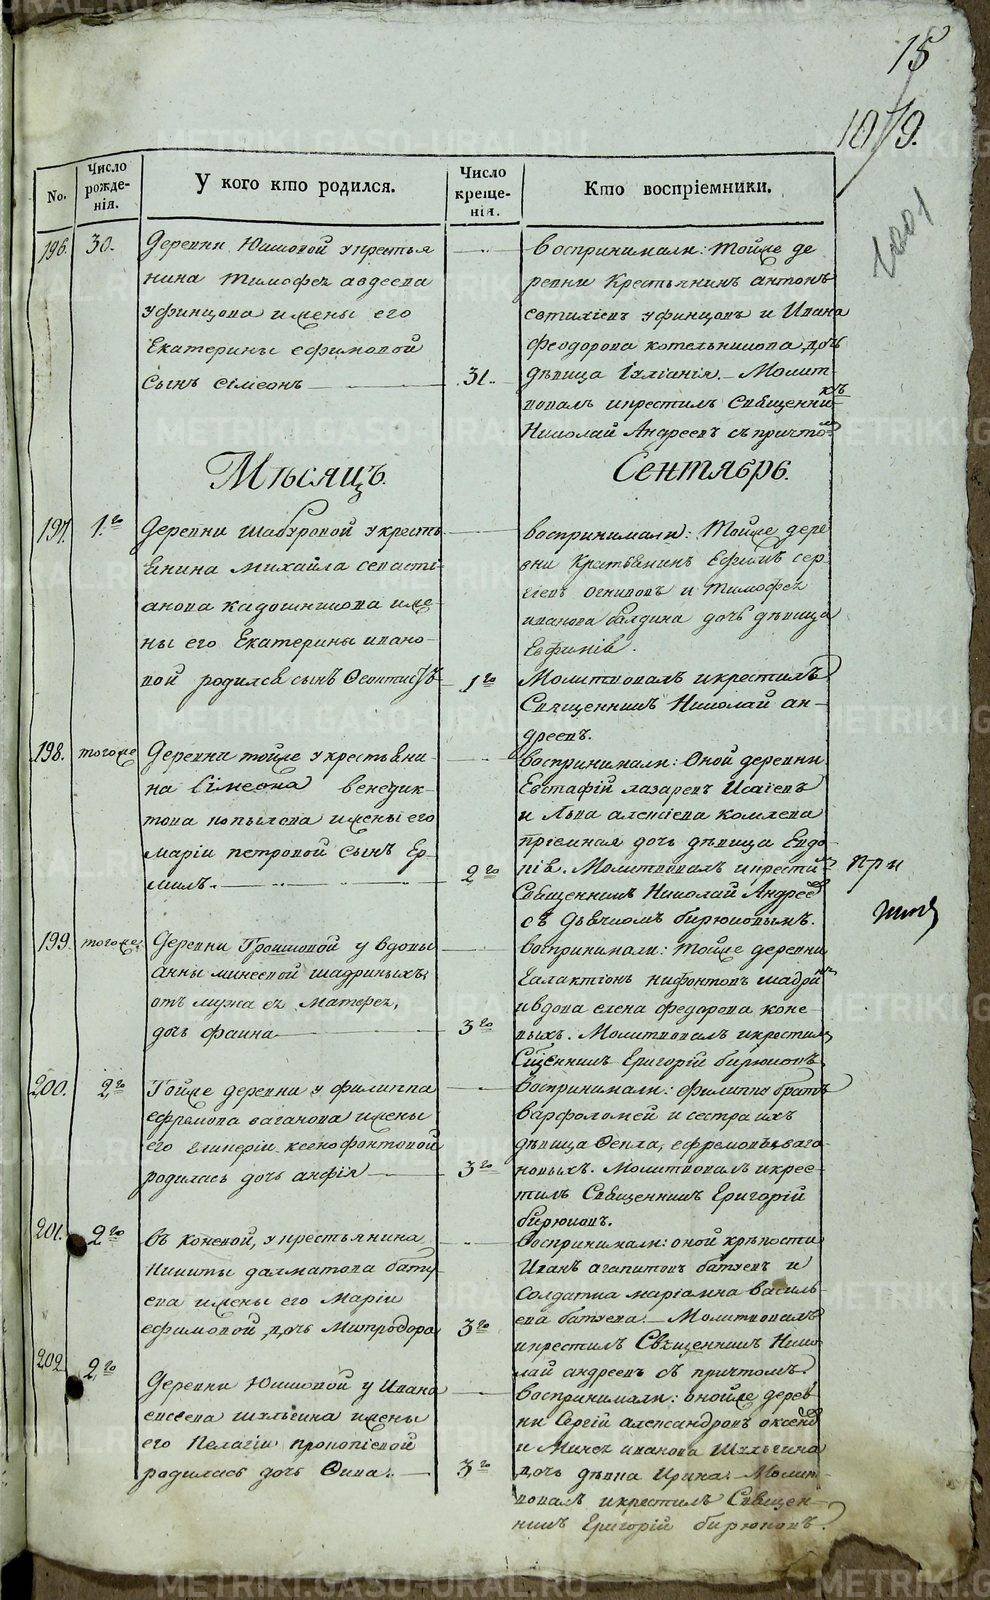 15
1079.
1001
No.
Число рожде-нія.
У кого кто родился.
Число креще-нія.
Кто воспріемники.
196. 30.
Деревни Юшовой у крестья
нина Тимофея авдеева
уфинцова и жены его
Екатерины ефимовой
сынъ сімеонъ
31.
воспринимали: Тойже де
ревни Крестьянинъ антонъ
евтихіевъ уфинцовъ и Ивана
феодорова котельникова дочь
дѣвица Іуліанія. Молит-
вовалъ и крестилъ Священникъ
Николай Андреевъ съ причто
Мѣсяцъ. Сентябрь.
197. 1го
Деревни шабуровой у кресть
янина Михайла севасті
анова кадошникова и же
ны его Екатерины ивано-
вой родился сынъ
1го
воспринимали: Тойже дере
вни Ефимъ сер
гіевъ огнивовъ и Тимофея
иванова балдина дочь дѣвица
Евфимія.
Молитвовалъ и крестилъ
Священникъ Николай ан-
дреевъ.
198. тогоже
Деревни тойже у крестьяни
на Сімеона венедик-
това копылова и жены его
Маріи петровой сынъ Ер-
милъ.
2го
воспринимали: Оной деревни
Евстафій лазаревъ Исаіевъ
и Льва алексіева комлева
пріемная дочь дѣвица Евдо-
кія. Молитвовалъ и крести
Священникъ Николай Андрее
съ Дьячкомъ бирюковымъ.
при
199. тогоже
Деревни Грошовой у вдовы
анны минеевой шадриныхъ
отъ мужа ея Матерея,
дочь фаина
3го
воспринимали: тойже деревни
Галактіонъ нифонтовъ шадри
и вдова елена федорова коне-
выхъ. Молитвовалъ и крестилъ
Сщенникъ Григорій бирюковъ
200. 2го
Тойже деревни у филиппа
ефремова ваганова и жены
его Гликеріи ксенофонтовой
родилась дочь анфія
3го
воспринимали: филиппа братъ
варфоломей и сестра ихъ
дѣвица Фекла, ефремовы вага-
новыхъ. Молитвовалъ и крес-
тилъ Священникъ Григорій
бирюковъ.
201. 2го
Въ коневой, у крестьянина
Никиты далматова бату
ева и жены его Маріи
ефимовой дочь Митродора
3го
воспринимали: оной крѣпости
Иванъ агапитовъ батуевъ и
Солдатка маріамна василь-
ева батуева. Молитвовалъ
и крестилъ Священникъ Нико-
лай андреевъ съ причтомъ.
202. 2го
Деревни Юшовой у Ивана
евсеева шульгина и жены
его Пелагіи прокопіевой
родилась дочь Фива.
3го
воспринимали: онойже дерев-
ни Сергій александровъ
и Минея иванова Шульгина
дочь дѣвка Ирина. Молит-
вовалъ и крестилъ Священ-
никъ Григорій бирюковъ.
METRIKI.GASO-URAL.RU